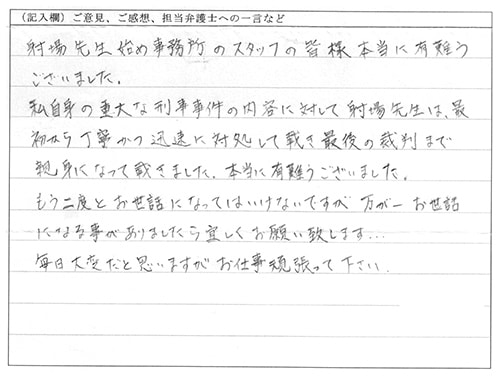 （記入欄）ご意見、ご感想、担当弁護士への一言など
射場先生始め事務所のスタッフの皆様本当に有難う
ございました。
私自身の重大な刑事事件の内容に対して射場先生は、最
初から丁寧かつ迅速に対処して戴き最後の裁判まで
親身になって戴きました。本当に有難うございました。
もう二度とお世話になってはいけないですが 万が一 お世話
になる事がありましたら宜しくお願い致します…
毎日大変だと思いますがお仕事頑張って下さい.